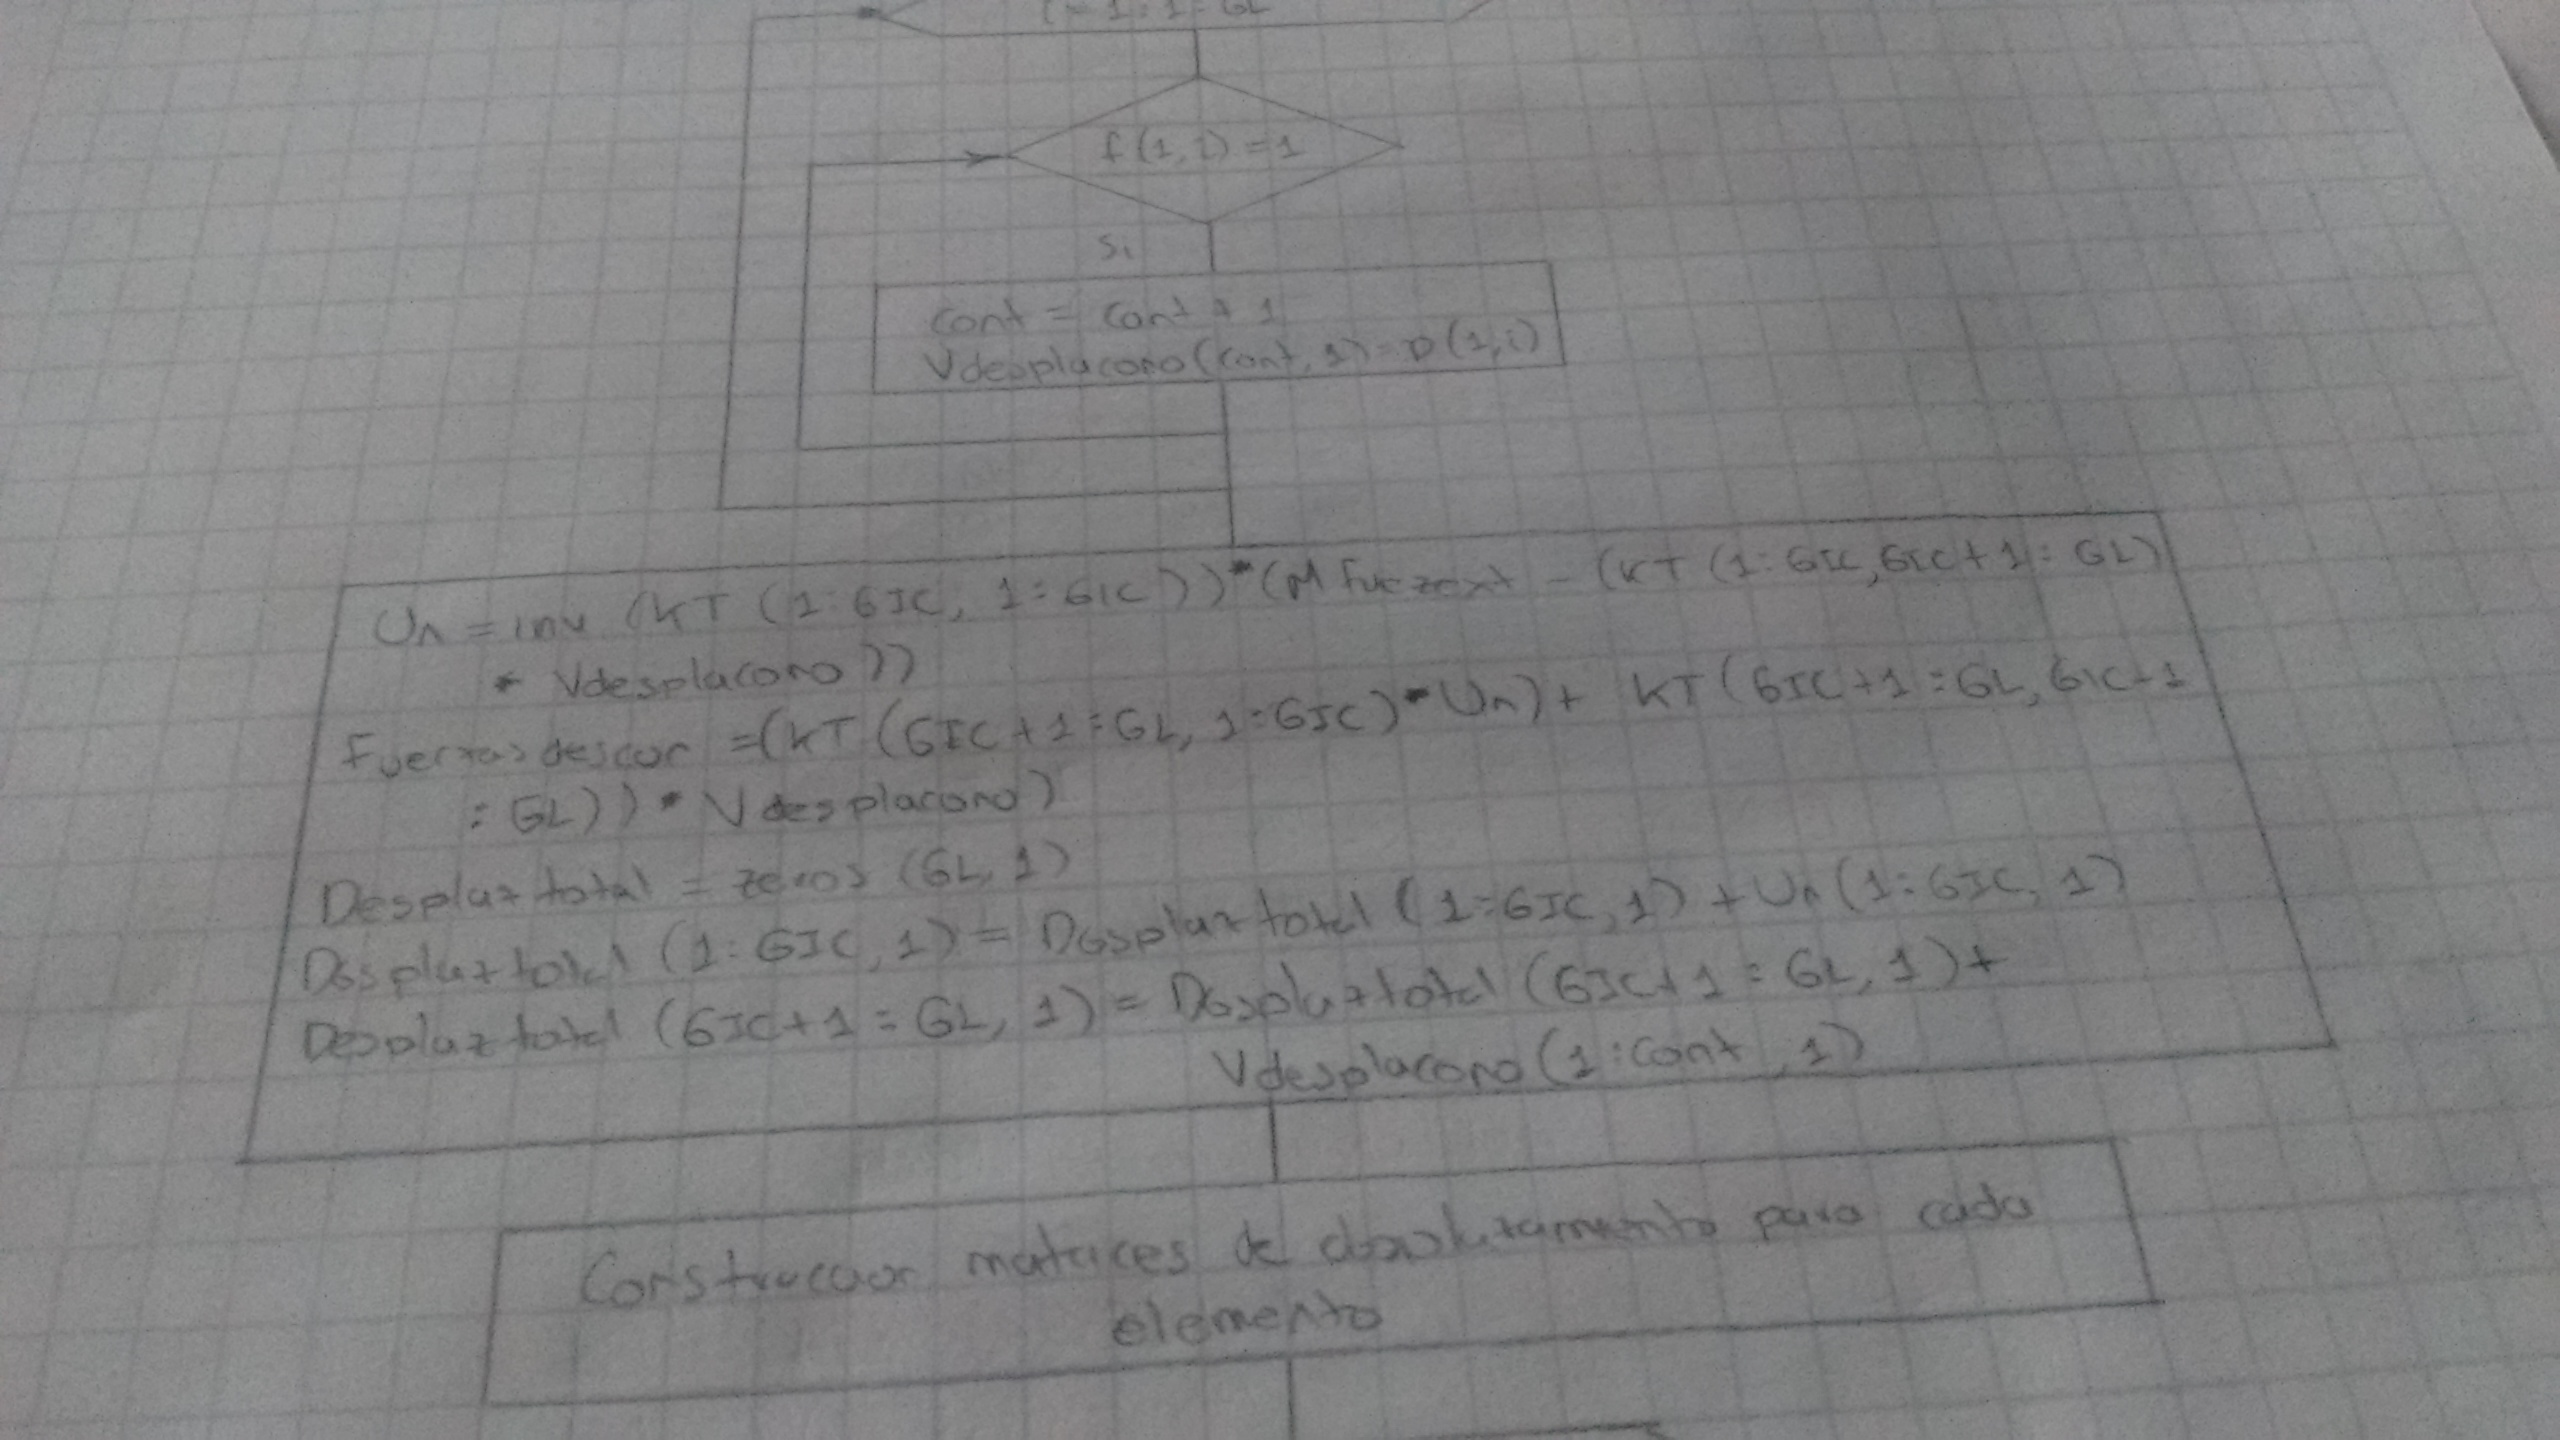 i = 1:1:GL
f(1,i)=1
Si
Cont = Cont + 1
Vdesplacono(cont,1)=D(1,i)
Un = inv (KT (1:GIC, 1:GIC))*(MFuerzext - (KT (1:GIC,GIC+1:GL)
* Vdesplacono))
Fuerzasdescor =(KT (GIC+1:GL, 1:GIC)*Un)+ KT(GIC+1:GL,GIC+1
:GL))*Vdesplacono)
Desplaztotal = zeros (GL,1)
Desplaztotal (1:GIC,1) = Desplaztotal (1:GIC,1)+Un(1:GIC,1)
Desplaztotal (GIC+1:GL,1)= Desplaztotal (GIC+1:GL,1)+
Vdesplacono(1:cont,1)
Construccion matrices de para cada
elemento